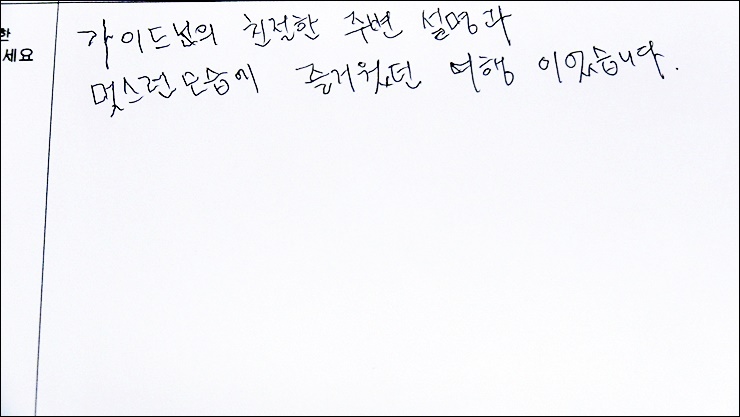 한
세요
가이드님의 친절한 주변 설명과
멋스런모습에 즐거웠던 여행 이었습니다.